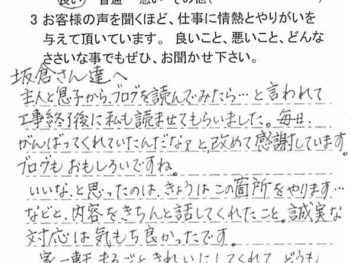 良い 普通 悪い その他
3 お客様の声を聞くほど、仕事に情熱とやりがいを
与えて頂いています。良いこと、悪いこと、どんな
ささいな事でもぜひ、お聞かせ下さい。
坂倉さん達へ
主人と息子から、ブログを読んでみたら…と言われて
工事終了後に私も読ませてもらいました。毎日、
がんばってくれていたんだなァと、改めて感謝しています。
ブログもおもしろいですね。
いいな、と思ったのは、きょうは この箇所をやります…
などと、内容をきちんと話してくれたこと。誠実な
対応は気もち良かったです。
家一軒 まるごときれいにしてくれて どうも